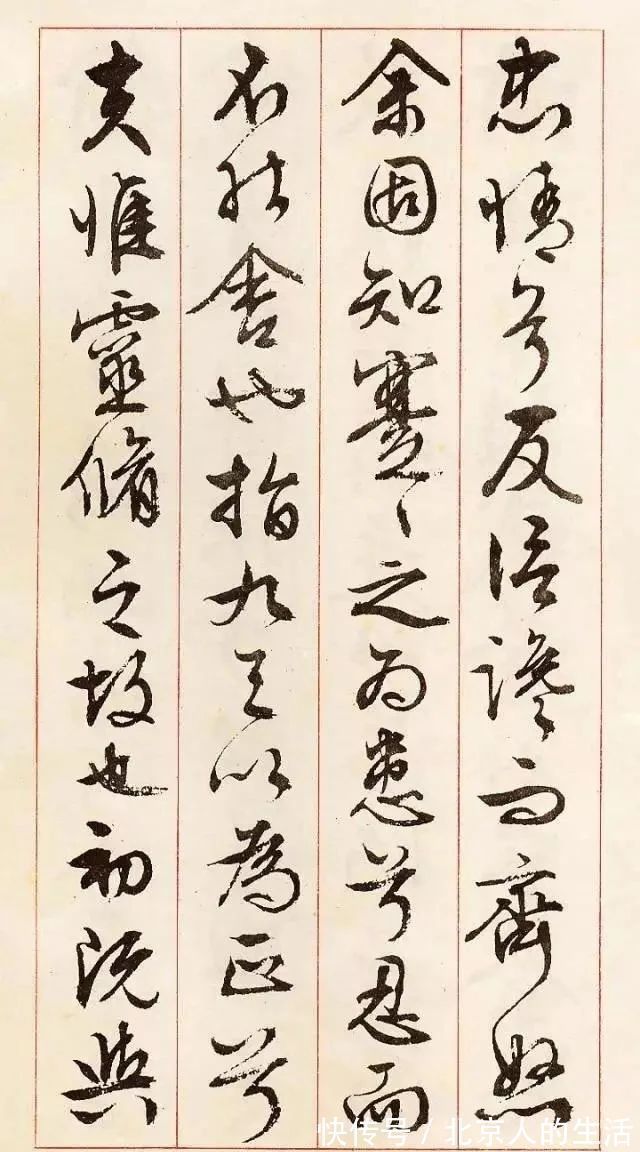 忠情兮反信讒而齊怒
余固知謇々之为患兮忍而
不能舍也指九天以為正兮
夫惟靈脩之故也初既與
快传号 / 北京人的生活